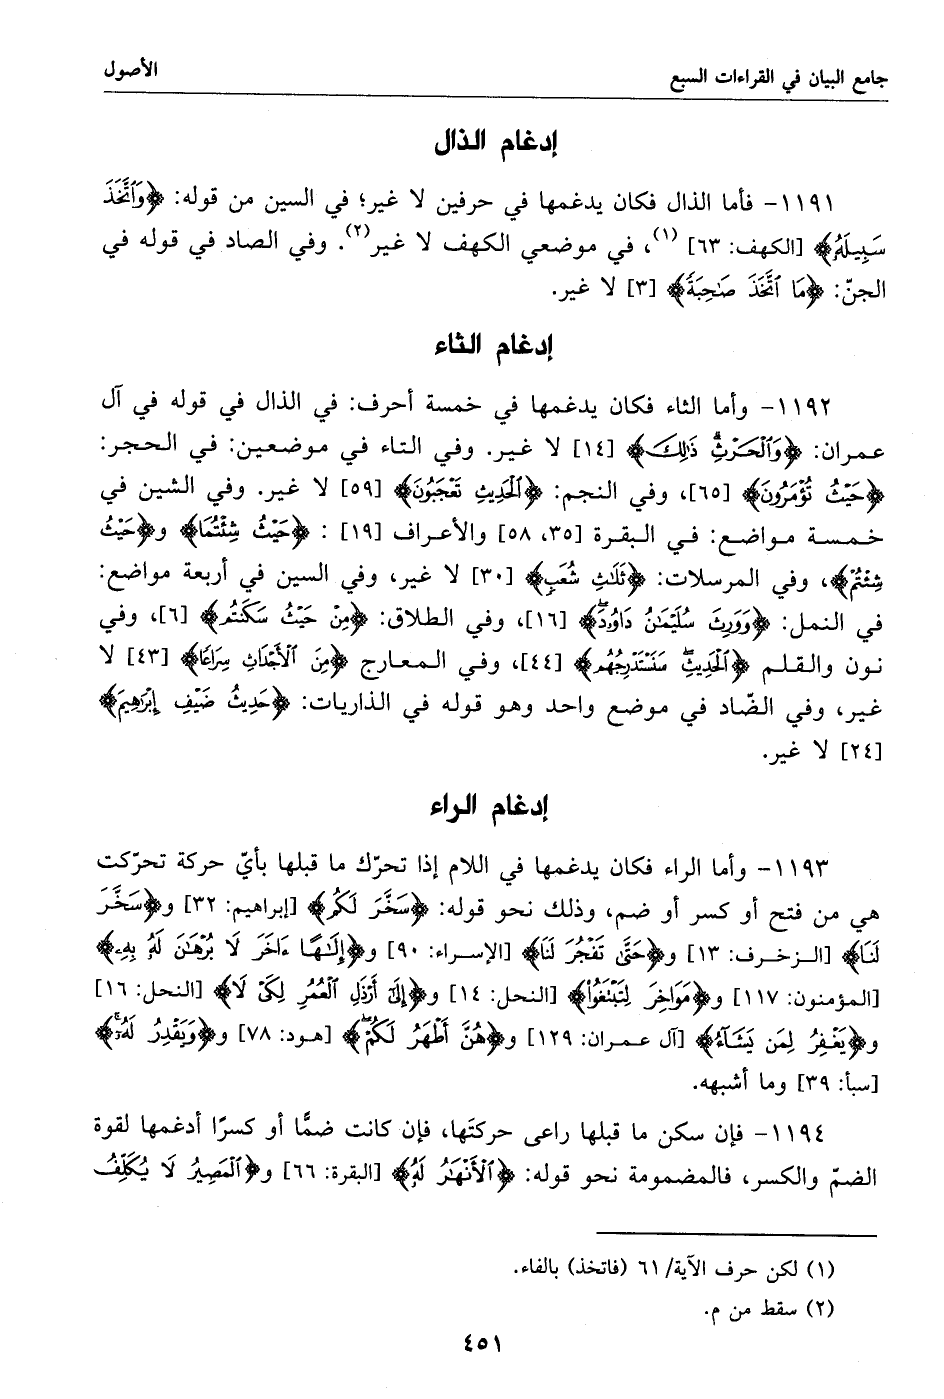 جامع البيان في القراءات السبع
الأصول
إدغام الذال
١١٩١- فأما الذال فكان يدغمها في حرفين لا غير؛ في السين من قوله: ﴿وَٱتَّخَذَ
سَبِيلَهُۥ﴾ [الكهف: ٦٣] (١)، في موضعي الكهف لا غير(٢). وفي الصاد في قوله في
الجنّ: ﴿مَا ٱتَّخَذَ صَـٰحِبَةً﴾ [٣] لا غير.
إدغام الثاء
١١٩٢- وأما الثاء فكان يدغمها في خمسة أحرف: في الذال في قوله في آل
عمران: ﴿وَٱلْحَرْثِۗ ذَٰلِكَ﴾ [١٤] لا غير. وفي التاء في موضعين: في الحجر:
﴿حَيْثُ تُؤْمَرُونَ﴾ [٦٥]، وفي النجم: ﴿ٱلْحَدِيثِ تَعْجَبُونَ﴾ [٥٩] لا غير. وفي الشين في
خمسة مواضع: في البقرة [٣٥، ٥٨] والأعراف [١٩] : ﴿حَيْثُ شِئْتُمَا﴾ و﴿حَيْثُ
شِئْتُمْ﴾، وفي المرسلات: ﴿ثَلَـٰثِ شُعَبٍ﴾ [٣٠] لا غير، وفي السين في أربعة مواضع:
في النمل: ﴿وَوَرِثَ سُلَيْمَـٰنُ دَاوُۥدَۖ﴾ [١٦]، وفي الطلاق: ﴿مِنْ حَيْثُ سَكَنتُم﴾ [٦]، وفي
نون والقلم ﴿ٱلْحَدِيثِۖ سَنَسْتَدْرِجُهُم﴾ [٤٤]، وفي المعارج ﴿مِنَ ٱلْأَجْدَاثِ سِرَاعًا﴾ [٤٣] لا
غير، وفي الضّاد في موضع واحد وهو قوله في الذاريات: ﴿حَدِيثُ ضَيْفِ إِبْرَٰهِيمَ﴾
[٢٤] لا غير.
إدغام الراء
١١٩٣- وأما الراء فكان يدغمها في اللام إذا تحرّك ما قبلها بأيّ حركة تحرّكت
هي من فتح أو كسر أو ضم، وذلك نحو قوله: ﴿سَخَّرَ لَكُم﴾ [إبراهيم: ٣٢] و﴿سَخَّرَ
لَنَا﴾ [الزخرف: ١٣] و﴿حَتَّىٰ تَفْجُرَ لَنَا﴾ [الإسراء: ٩٠] و﴿إِلَـٰهًا ءَاخَرَ لَا بُرْهَـٰنَ لَهُۥ بِهِۦ﴾
[المؤمنون: ١١٧] و﴿مَوَاخِرَ لِتَبْتَغُوا۟﴾ [النحل: ١٤] و﴿إِلَىٰٓ أَرْذَلِ ٱلْعُمُرِ لِكَىْ لَا﴾ [النحل: ١٦]
و﴿يَغْفِرُ لِمَن يَشَآءُ﴾ [آل عمران: ١٢٩] و﴿هُنَّ أَطْهَرُ لَكُمْۖ﴾ [هود: ٧٨] و﴿وَيَقْدِرُ لَهُۥۚ﴾
[سبأ: ٣٩] وما أشبهه.
١١٩٤- فإن سكن ما قبلها راعى حركتَها، فإن كانت ضمًّا أو كسرًا أدغمها لقوة
الضمّ والكسر، فالمضمومة نحو قوله: ﴿ٱلْأَنْهَـٰرُ لَهُۥ﴾ [البقرة: ٦٦] و﴿ٱلْمَصِيرُ لَا يُكَلِّفُ
(١) لكن حرف الآية/ ٦١ (فاتخذ) بالفاء.
(٢) سقط من م.
٤٥١